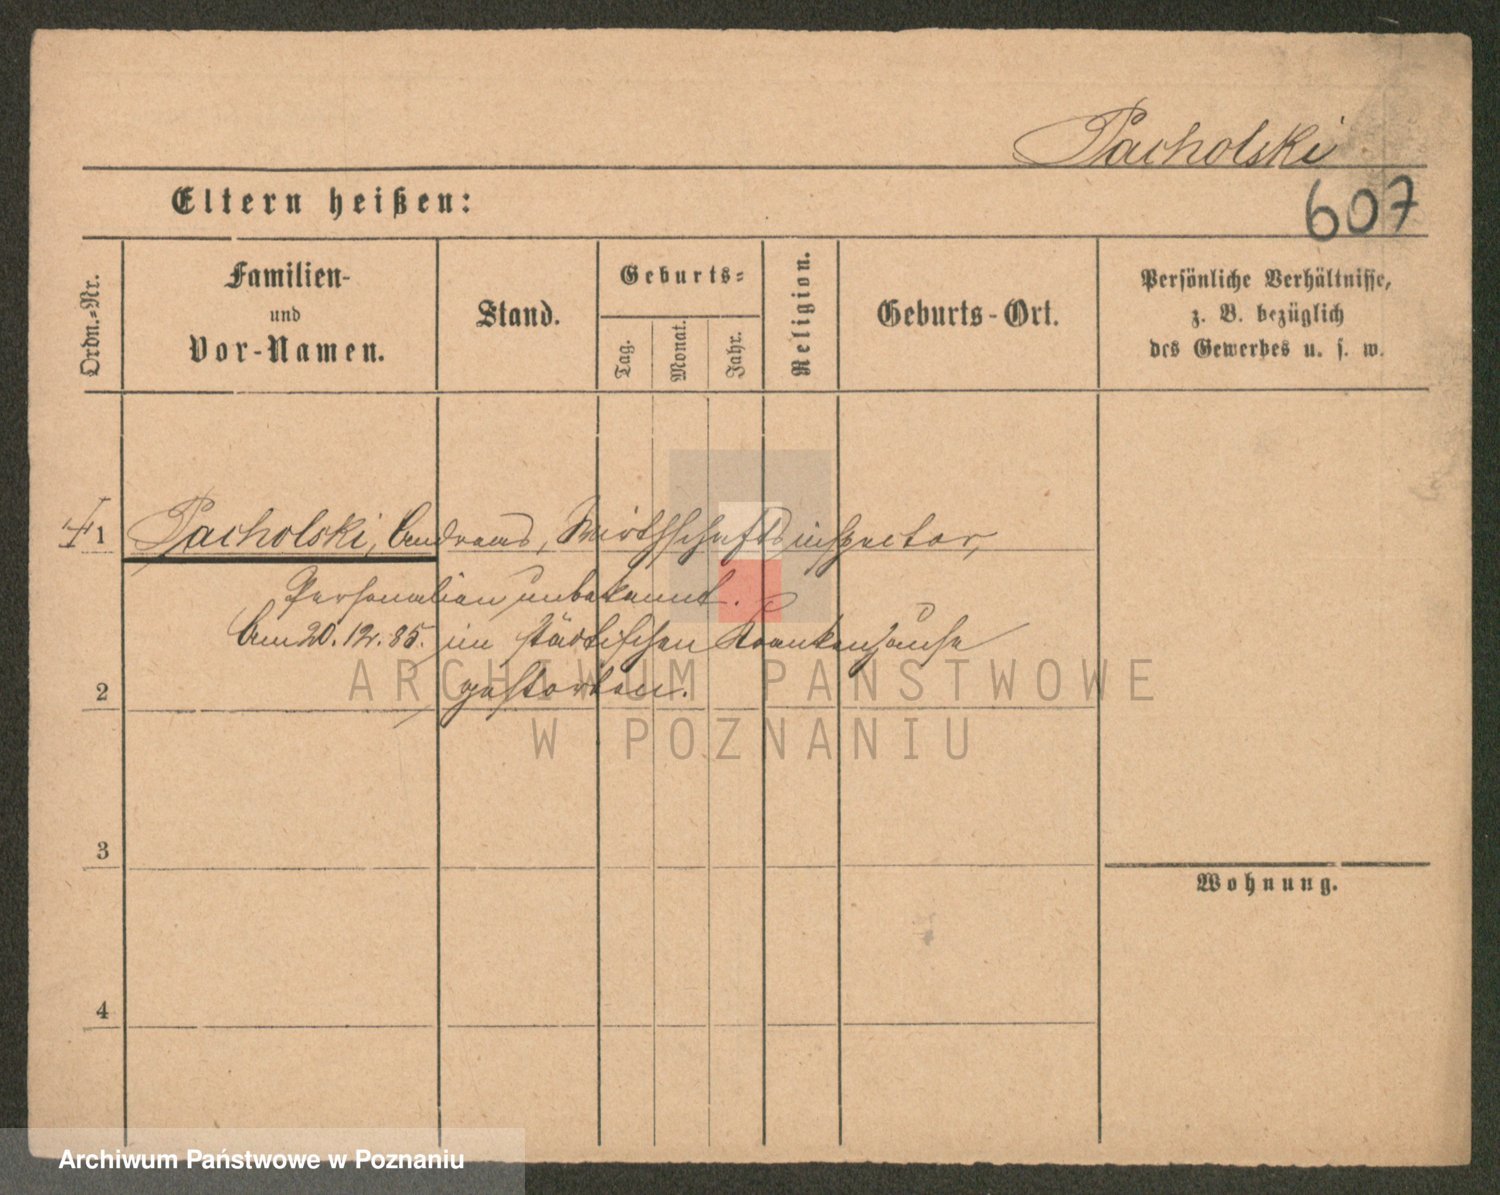 Pacholski
607
Eltern heißen:
Ordn.-Nr.
Familien-
und
Vor-Namen.
Stand.
Geburts-
Tag.
Monat.
Jahr.
Religion.
Geburts-Ort.
Persönliche Verhältnisse,
z. B. bezüglich
des Gewerbes u. s. w.
1 Pacholski, Andreas, Wirthschaftsinspector,
Personalien unbekannt.
Am 20.12.85. im städtischen Krankenhause
2 gestorben.
3
Wohnung.
4
ARCHIWUM PAŃSTWOWE
W POZNANIU
Archiwum Państwowe w Poznaniu